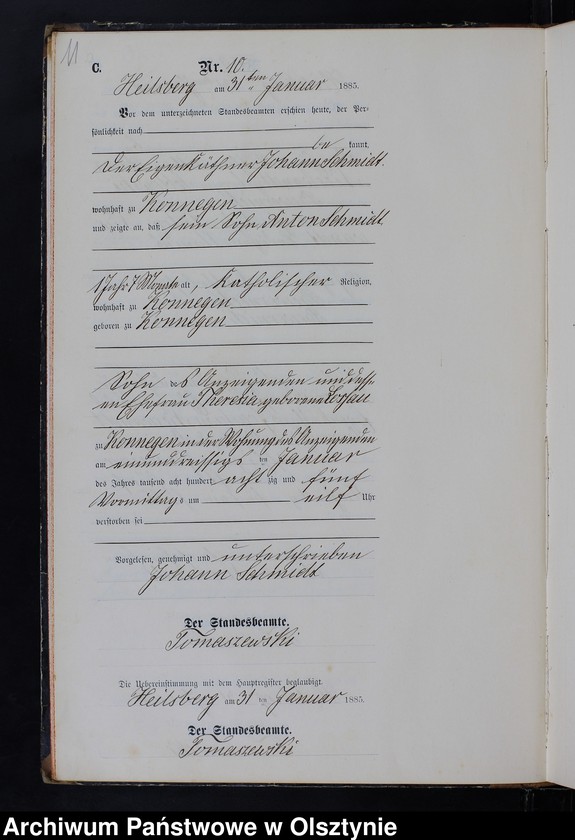 11
C.
Nr. 10.
Heilsberg am 31ten Januar 1885.
Vor dem unterzeichneten Standesbeamten erschien heute, der Per-
sönlichkeit nach
be kannt,
Der Eigenkäthner Johann Schmidt
wohnhaft zu Konnegen
und zeigte an, daß sein Sohn Anton Schmidt
1 Jahr 7 Monate alt, Katholischer Religion,
wohnhaft zu Konnegen
geboren zu Konnegen
Sohn des Anzeigenden und dess-
en Ehefrau Theresia geborene
zu Konnegen in der Wohnung des Anzeigenden
am einunddreissigs ten Januar
des Jahres tausend acht hundert acht zig und fünf
Vormittag s um eilf Uhr
verstorben sei
Vorgelesen, genehmigt und unterschrieben
Johann Schmidt
Der Standesbeamte.
Tomaszewski
Die Uebereinstimmung mit dem Hauptregister beglaubigt.
Heilsberg am 31 ten Januar 1885.
Der Standesbeamte.
Tomaszewski
Archiwum Państwowe w Olsztynie